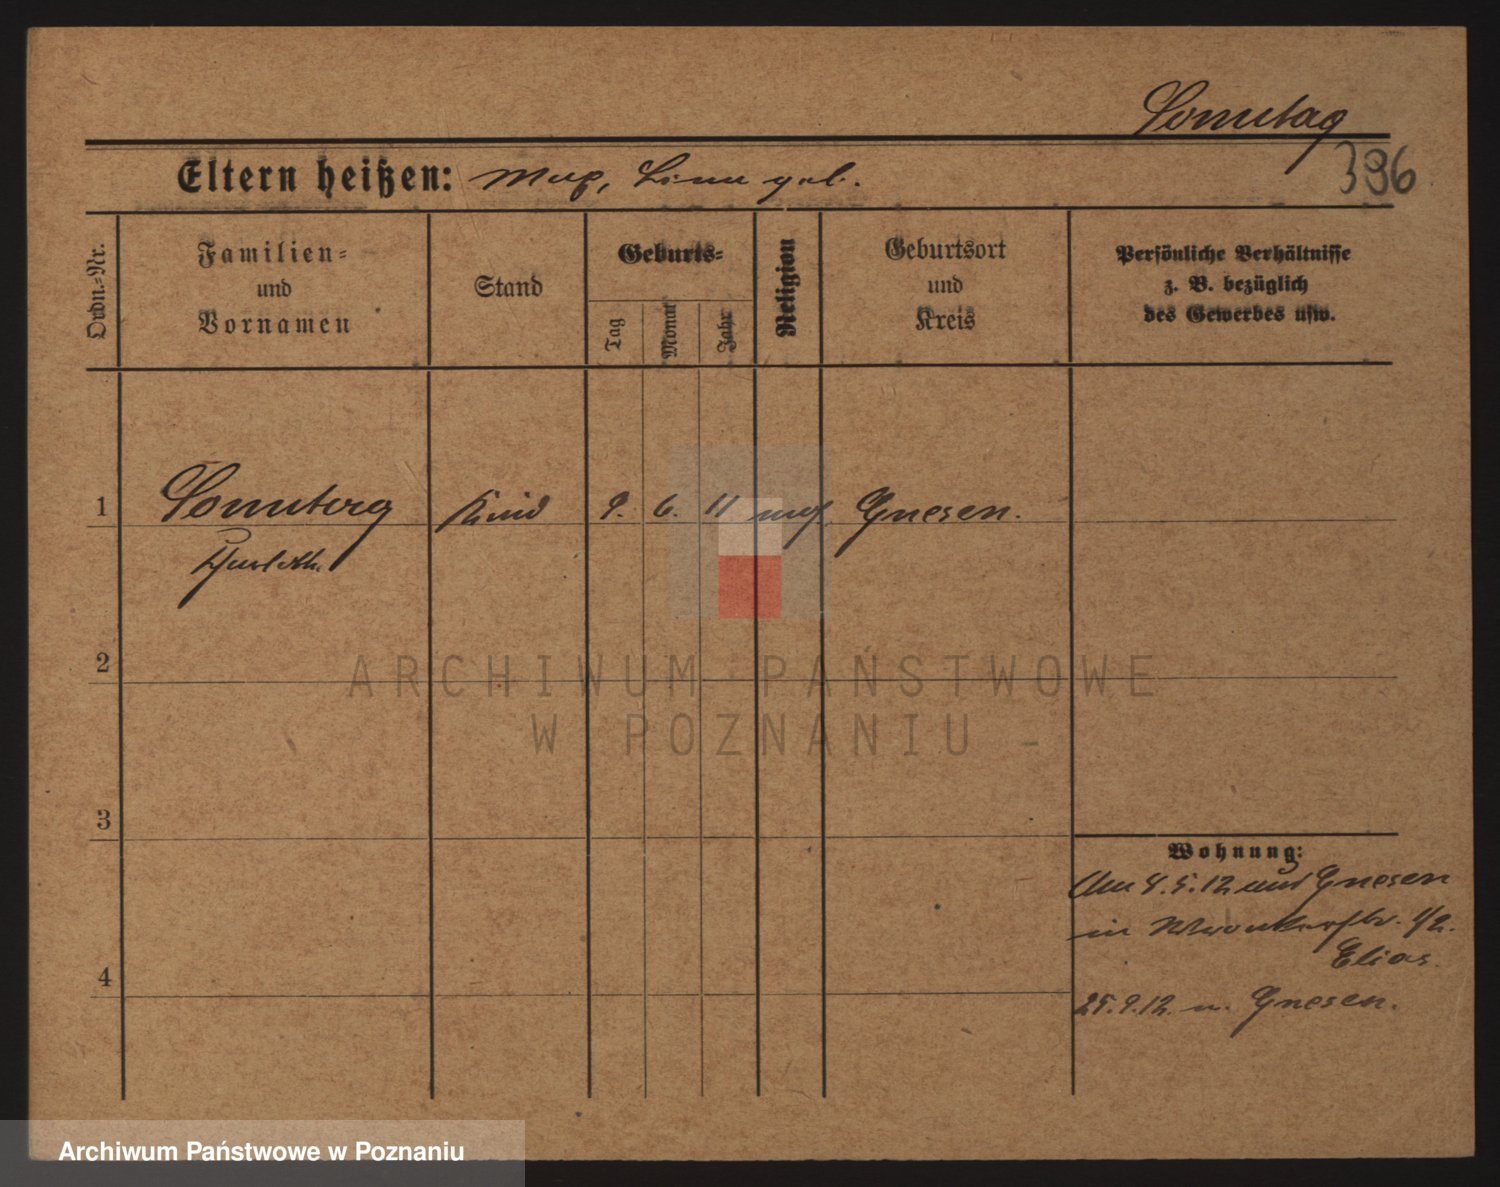 Sonntag
396
Eltern heißen: Max, Lina geb.
Ordn.-Nr.
Familien-
und
Vornamen
Stand
Geburts-
Tag
Monat
Jahr
Religion
Geburtsort
und
Kreis
Persönliche Verhältnisse
z. B. bezüglich
des Gewerbes usw.
1 Sonntag Kind 9. 6. 11 mos. Gnesen.
2
3
4
Wohnung:
Am 4.5.12 aus Gnesen
in
Elias.
25.9.12. n. Gnesen.
ARCHIWUM PAŃSTWOWE
W POZNANIU -
Archiwum Państwowe w Poznaniu